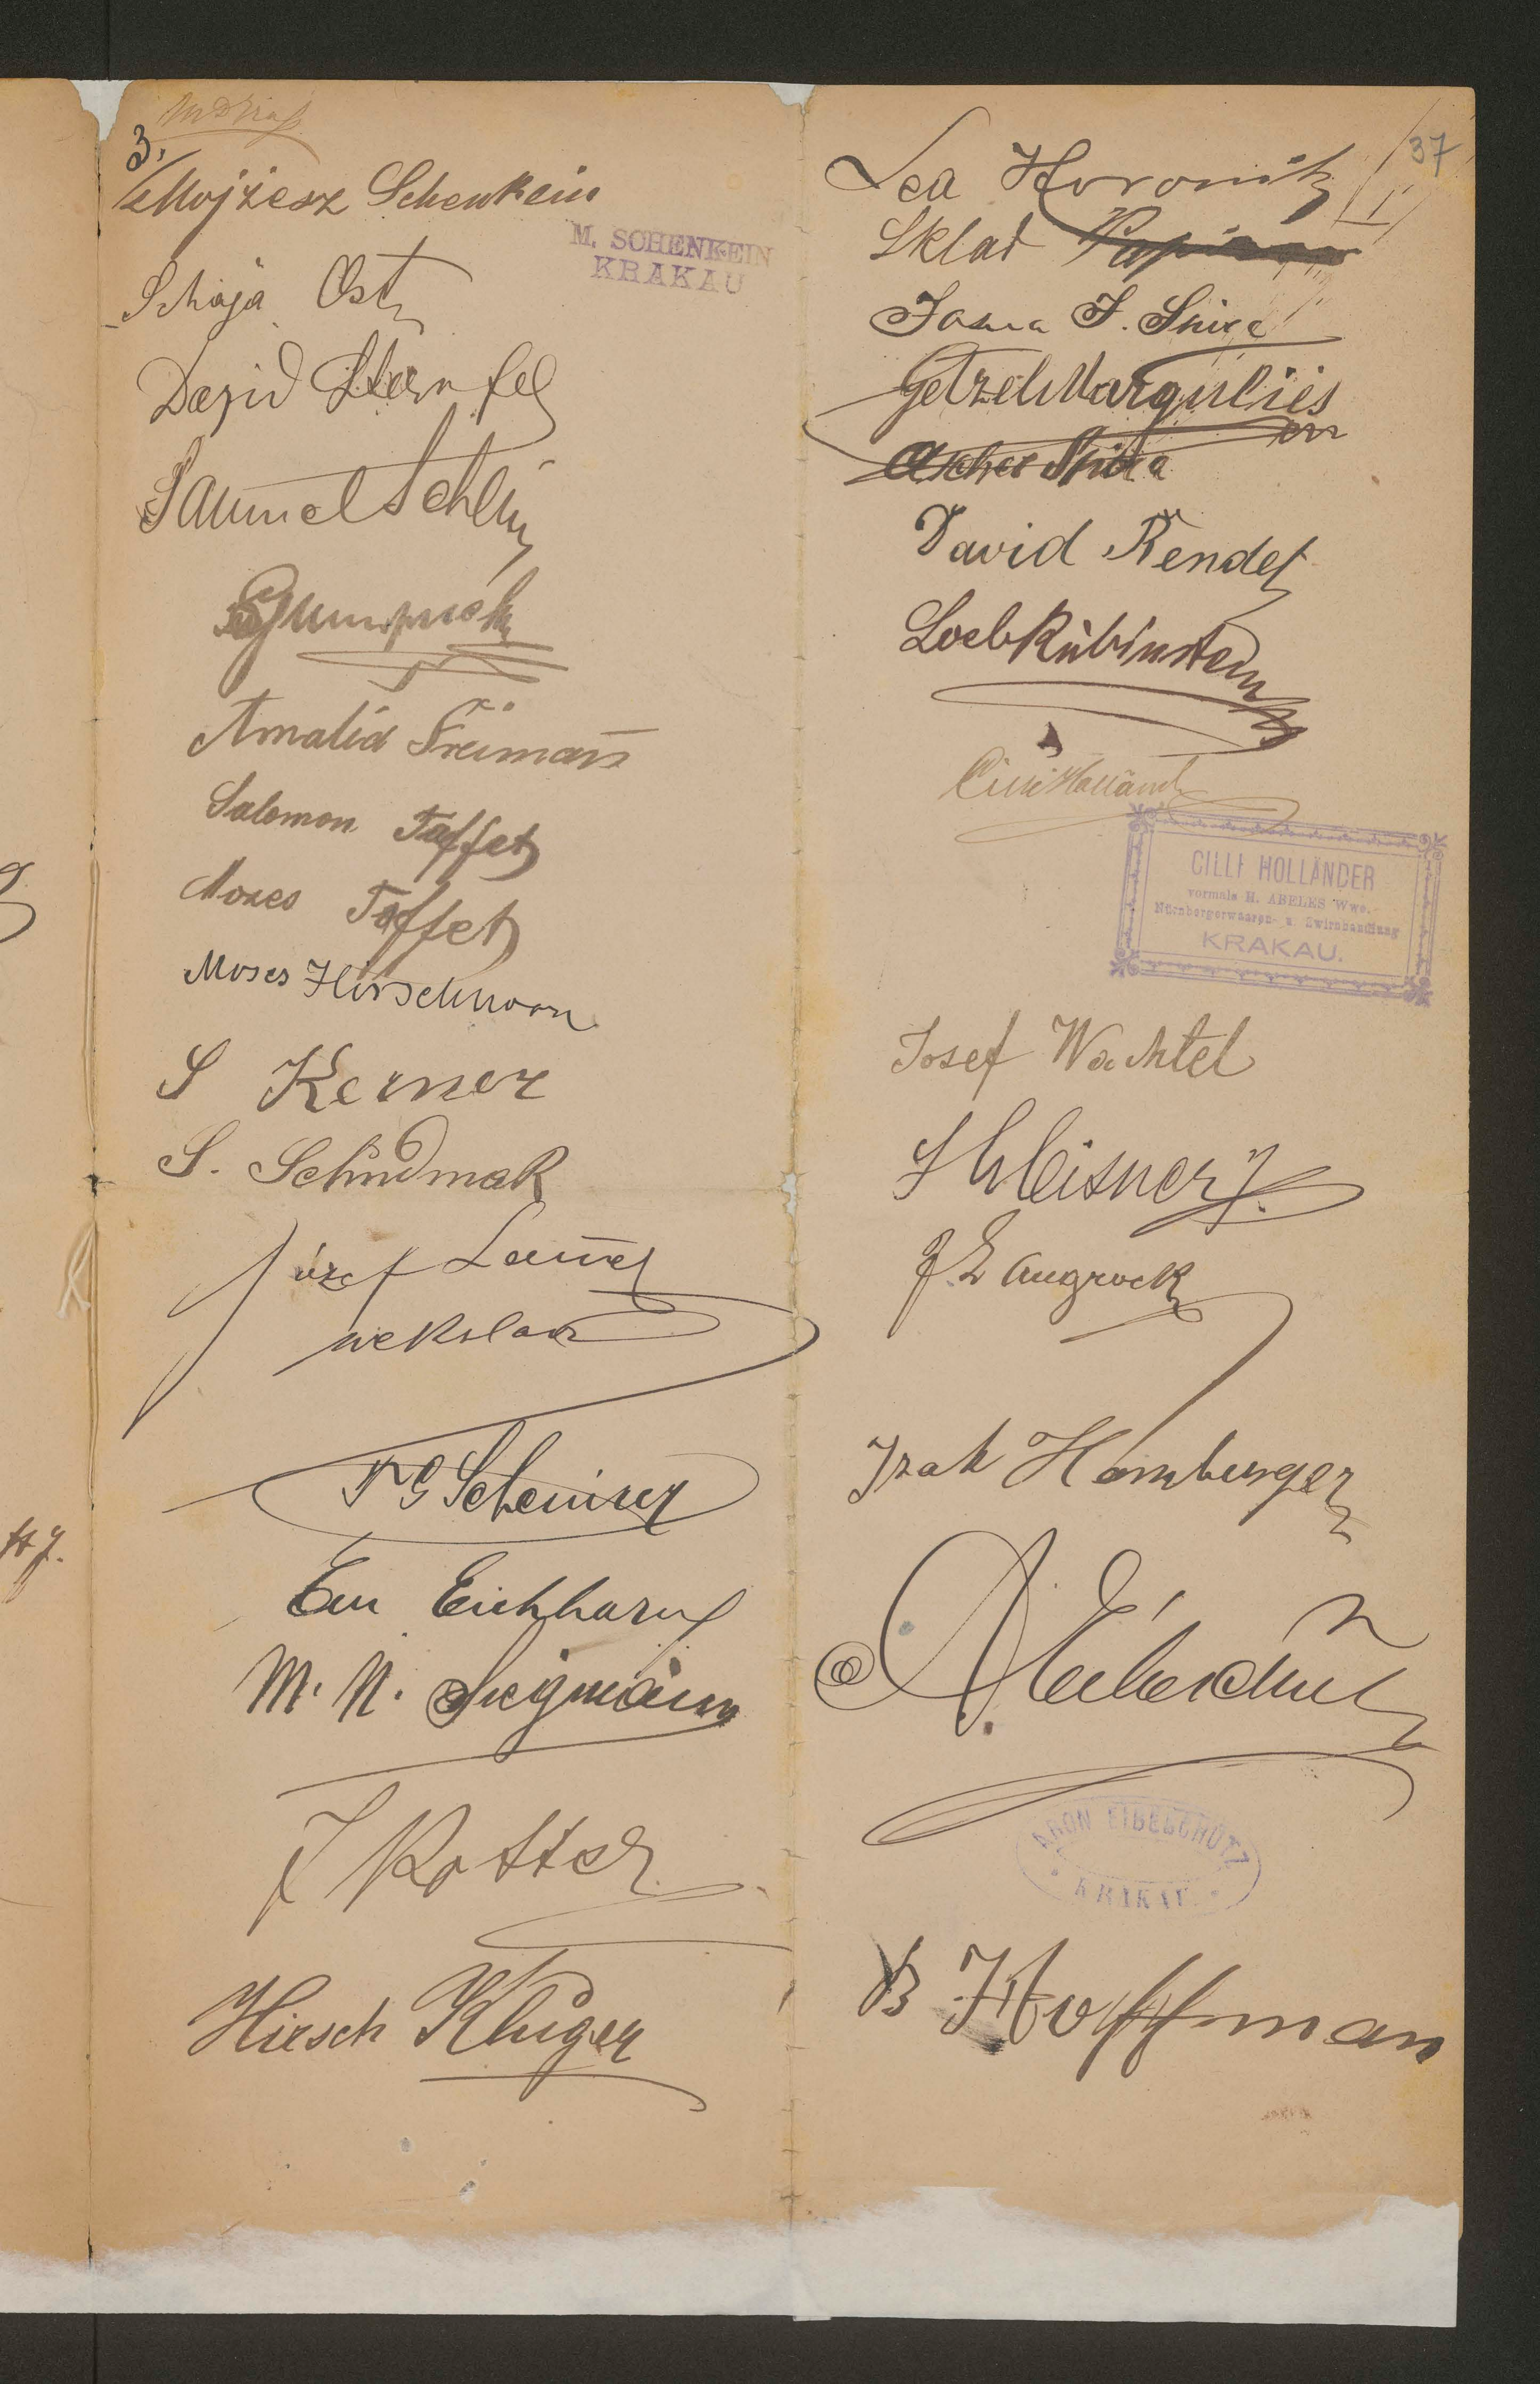 3.
Mojżesz Schenkein
M. SCHENKEIN
KRAKAU
Schaja Ost
David Sternfel
Samuel
Amalia Freiman
Salomon Taffet
Moses Taffet
Moses Hirschhorn
S Kerner
S. Schudmak
Józef
wekslarz
Em Eichhorn
M. N. Siegmann
J Rotter
Hirsch Kluger
37
I
Lea Horowitz
Skład Papieru
Josua J. Spira
Getzel Margulies
Ascher Spira
David Rendel
Loeb Rubinstein
Cilli Holländ
CILLI HOLLÄNDER
vormals H. ABELES Wwe.
Nürnbergerwaaren- u. Zwirnhandlung
KRAKAU.
Josef Wachtel
Meisner
J. Langrock
Izak Hamburger
A. Eibeschütz
ARON EIBESCHÜTZ
KRAKAU.
B Hoffman